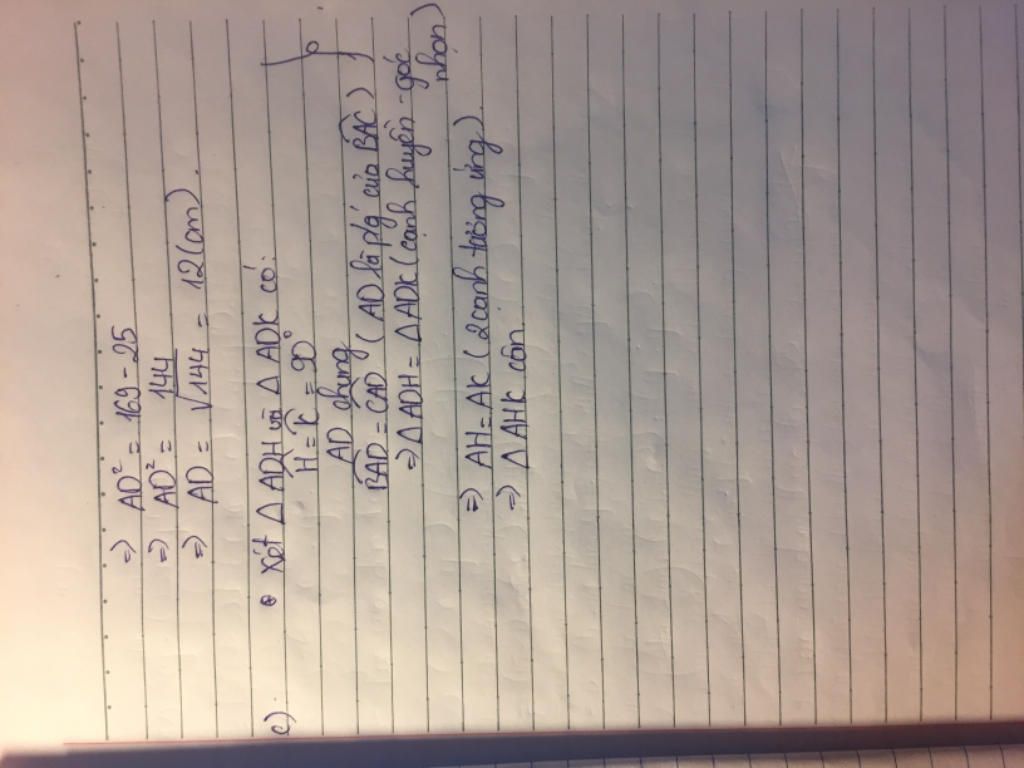 => AD² = 169 - 25
=> AD² = 144
=> AD = √144 = 12 (cm).
c) • Xét Δ ADH và Δ ADK có:
Ĥ = K̂ = 90°
AD chung
BAD = CAD (AD là p/g của BAC)
=> Δ ADH = Δ ADK (cạnh huyền - góc nhọn)
=> AH = AK (2 cạnh tương ứng).
=> Δ AHK cân.